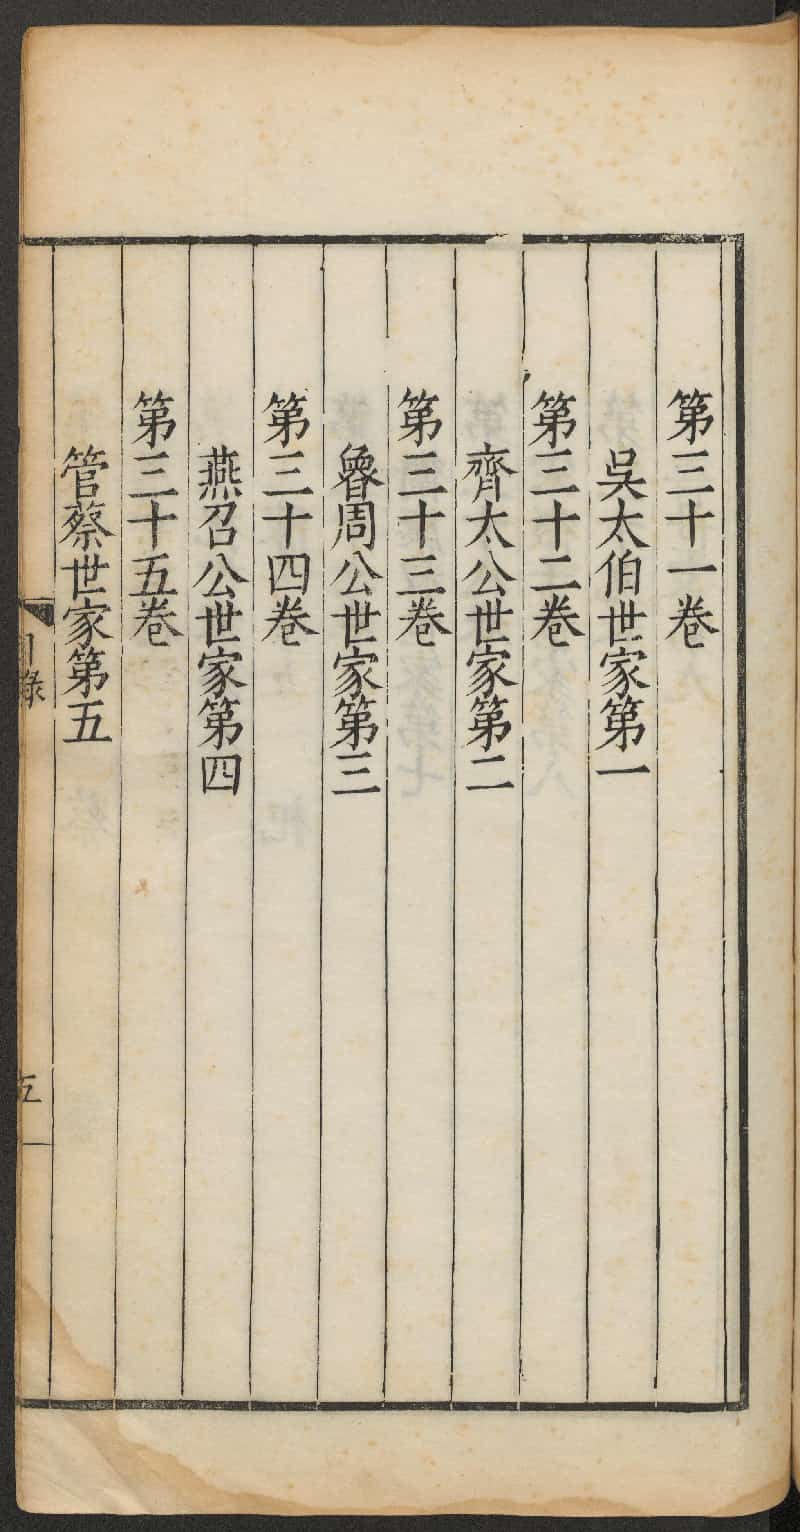 第三十一卷
吳太伯世家第一
第三十二卷
齊太公世家第二
第三十三卷
魯周公世家第三
第三十四卷
燕召公世家第四
第三十五卷
管蔡世家第五
目錄
五